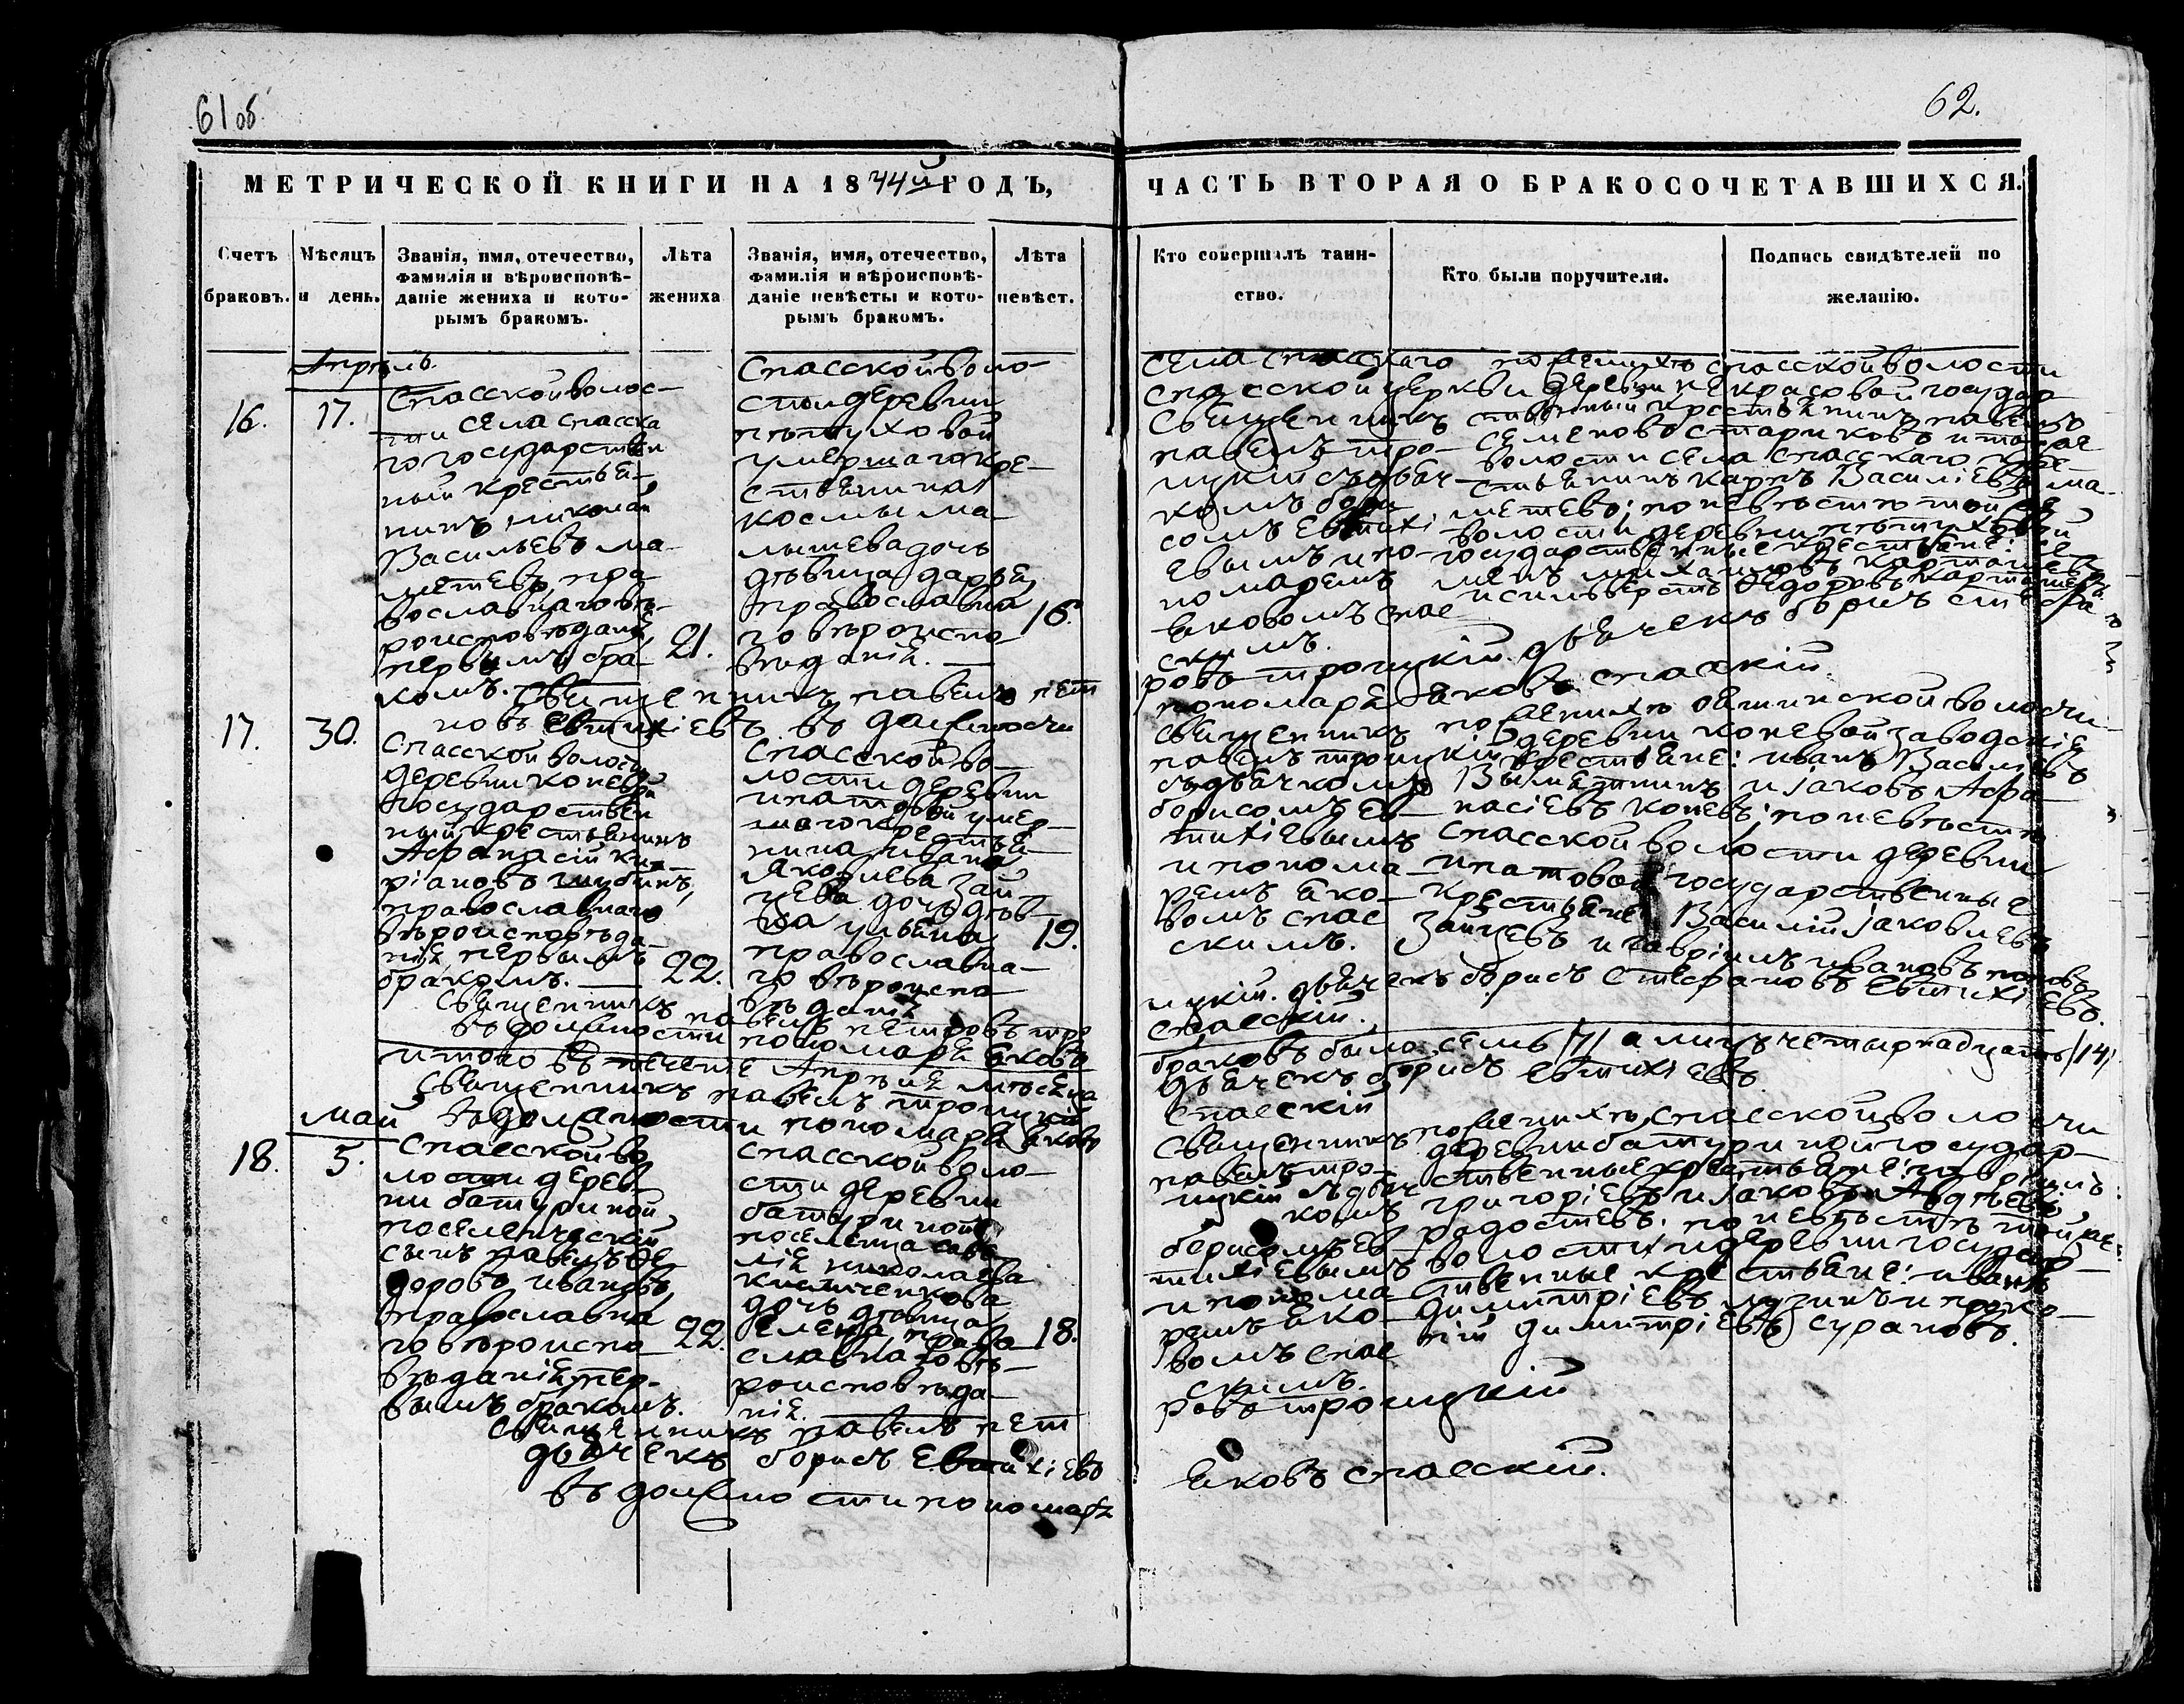 61 об.
62.
МЕТРИЧЕСКОЙ КНИГИ НА 1844й ГОДЪ,
ЧАСТЬ ВТОРАЯ О БРАКОСОЧЕТАВШИХСЯ.
Счетъ браковъ.
Мѣсяцъ и день.
Званія, имя, отечество,
фамилія и вѣроисповѣ-
даніе жениха и кото-
рымъ бракомъ.
Лѣта
жениха
Званія, имя, отечество,
фамилія и вѣроисповѣ-
даніе невѣсты и кото-
рымъ бракомъ.
Лѣта
невѣст.
Кто совершалъ таин-
ство.
Кто были поручители.
Подпись свидѣтелей по
желанію.
Апрѣль.
16.
17.
Спасской волос-
ти села спасска
го государствен
ный крестья-
нинъ николай
Васильевъ ма-
метевъ, пра
вославнаго вѣ-
роисповѣданія
первымъ бра-
комъ.
21.
Спасской воло-
сти деревни
пѣтуховой
умершаго кре-
стьянина
космы ма-
лышева дочь
дѣвица дарья,
православна
го вѣроиспо
вѣданія.
16.
села спасскаго
спасской церкви
священникъ
павелъ тро-
ицкій съ дьяч-
комъ бори
сомъ Евтихі
евымъ и по-
номаремъ
яковомъ спас
скимъ.
по женихѣ спасской волости
деревни некрасовой государ
ственный крестьянинъ павелъ
семеновъ стариковъ и тойже
волости села спасскаго кре-
стьянинъ карпъ Васильевъ ма-
метевъ; по невѣстѣ той же
волости деревни пѣтуховой
государственные крестьяне: се
менъ михаиловъ карташевъ
и сильверстъ Федоровъ карташевъ.
священникъ павелъ пет
ровъ троицкій. дьячекъ борисъ стефа
новъ евтихіевъ. въ должности
пономаря яковъ спасскій.
17.
30.
Спасской волости
деревни коневой
государствен
ный крестьянинъ
Афанасій ки-
ріановъ шубинъ,
православнаго
вѣроисповѣда-
нія первымъ
бракомъ.
22.
Спасской во-
лости деревни
ипатовой умер-
шаго крестья-
нина ивана
Яковлева Зай-
цева дочь дѣв-
ка ульяна
православна-
го вѣроиспо
вѣданія
19.
священникъ
павелъ троицкій
съ дьячкомъ
борисомъ ев-
тихіевымъ
и понома-
ремъ яко-
вомъ спас
скимъ.
по женихѣ
деревни коневой заводскіе
крестьяне: иванъ Васильевъ
и јаковъ Афа-
насіевъ коневъ; по невѣстѣ
спасской волости деревни
ипатовой государственные
крестьяне: Василій јаковлевъ
Зайцевъ и гавріилъ ивановъ поповъ.
священникъ павелъ петровъ тро
ицкій. дьячекъ борисъ стефановъ евтихіевъ.
въ должности пономаря яковъ
спасскій.
итого въ теченіе Апрѣля мѣсяца
браковъ было семь /7/ а лицъ четырнадцать /14/
священникъ павелъ троицкій
дьячекъ борисъ евтихіевъ
въ должности пономаря яковъ
спасскій
май
18.
5.
спасской во
лости дерев-
ни батуриной
поселенческій
сынъ павелъ Фе
доровъ ивановъ,
православна
го вѣроиспо
вѣданія, пер-
вымъ бракомъ.
22.
спасской воло-
сти деревни
батуриной
поселенца
николаева
дочь дѣвица
Елена, право
славнаго вѣ-
роисповѣда-
нія.
18.
священникъ
павелъ тро-
ицкій съ дьяч
комъ
борисомъ ев-
тихіевымъ
и понома-
ремъ яко-
вомъ спас
скимъ.
по женихѣ, спасской волости
деревни батуриной государ-
ственные крестьяне: гавріилъ
григоріевъ и јаковъ Авдѣевъ
радостевъ. по невѣстѣ той же
волости и деревни государ-
ственные крестьяне: иванъ
димитріевъ и проко-
пій димитріевъ сурановъ.
священникъ павелъ пет
ровъ троицкій
дьячекъ борисъ Евтихіевъ
въ должности пономаря
яковъ спасскій.